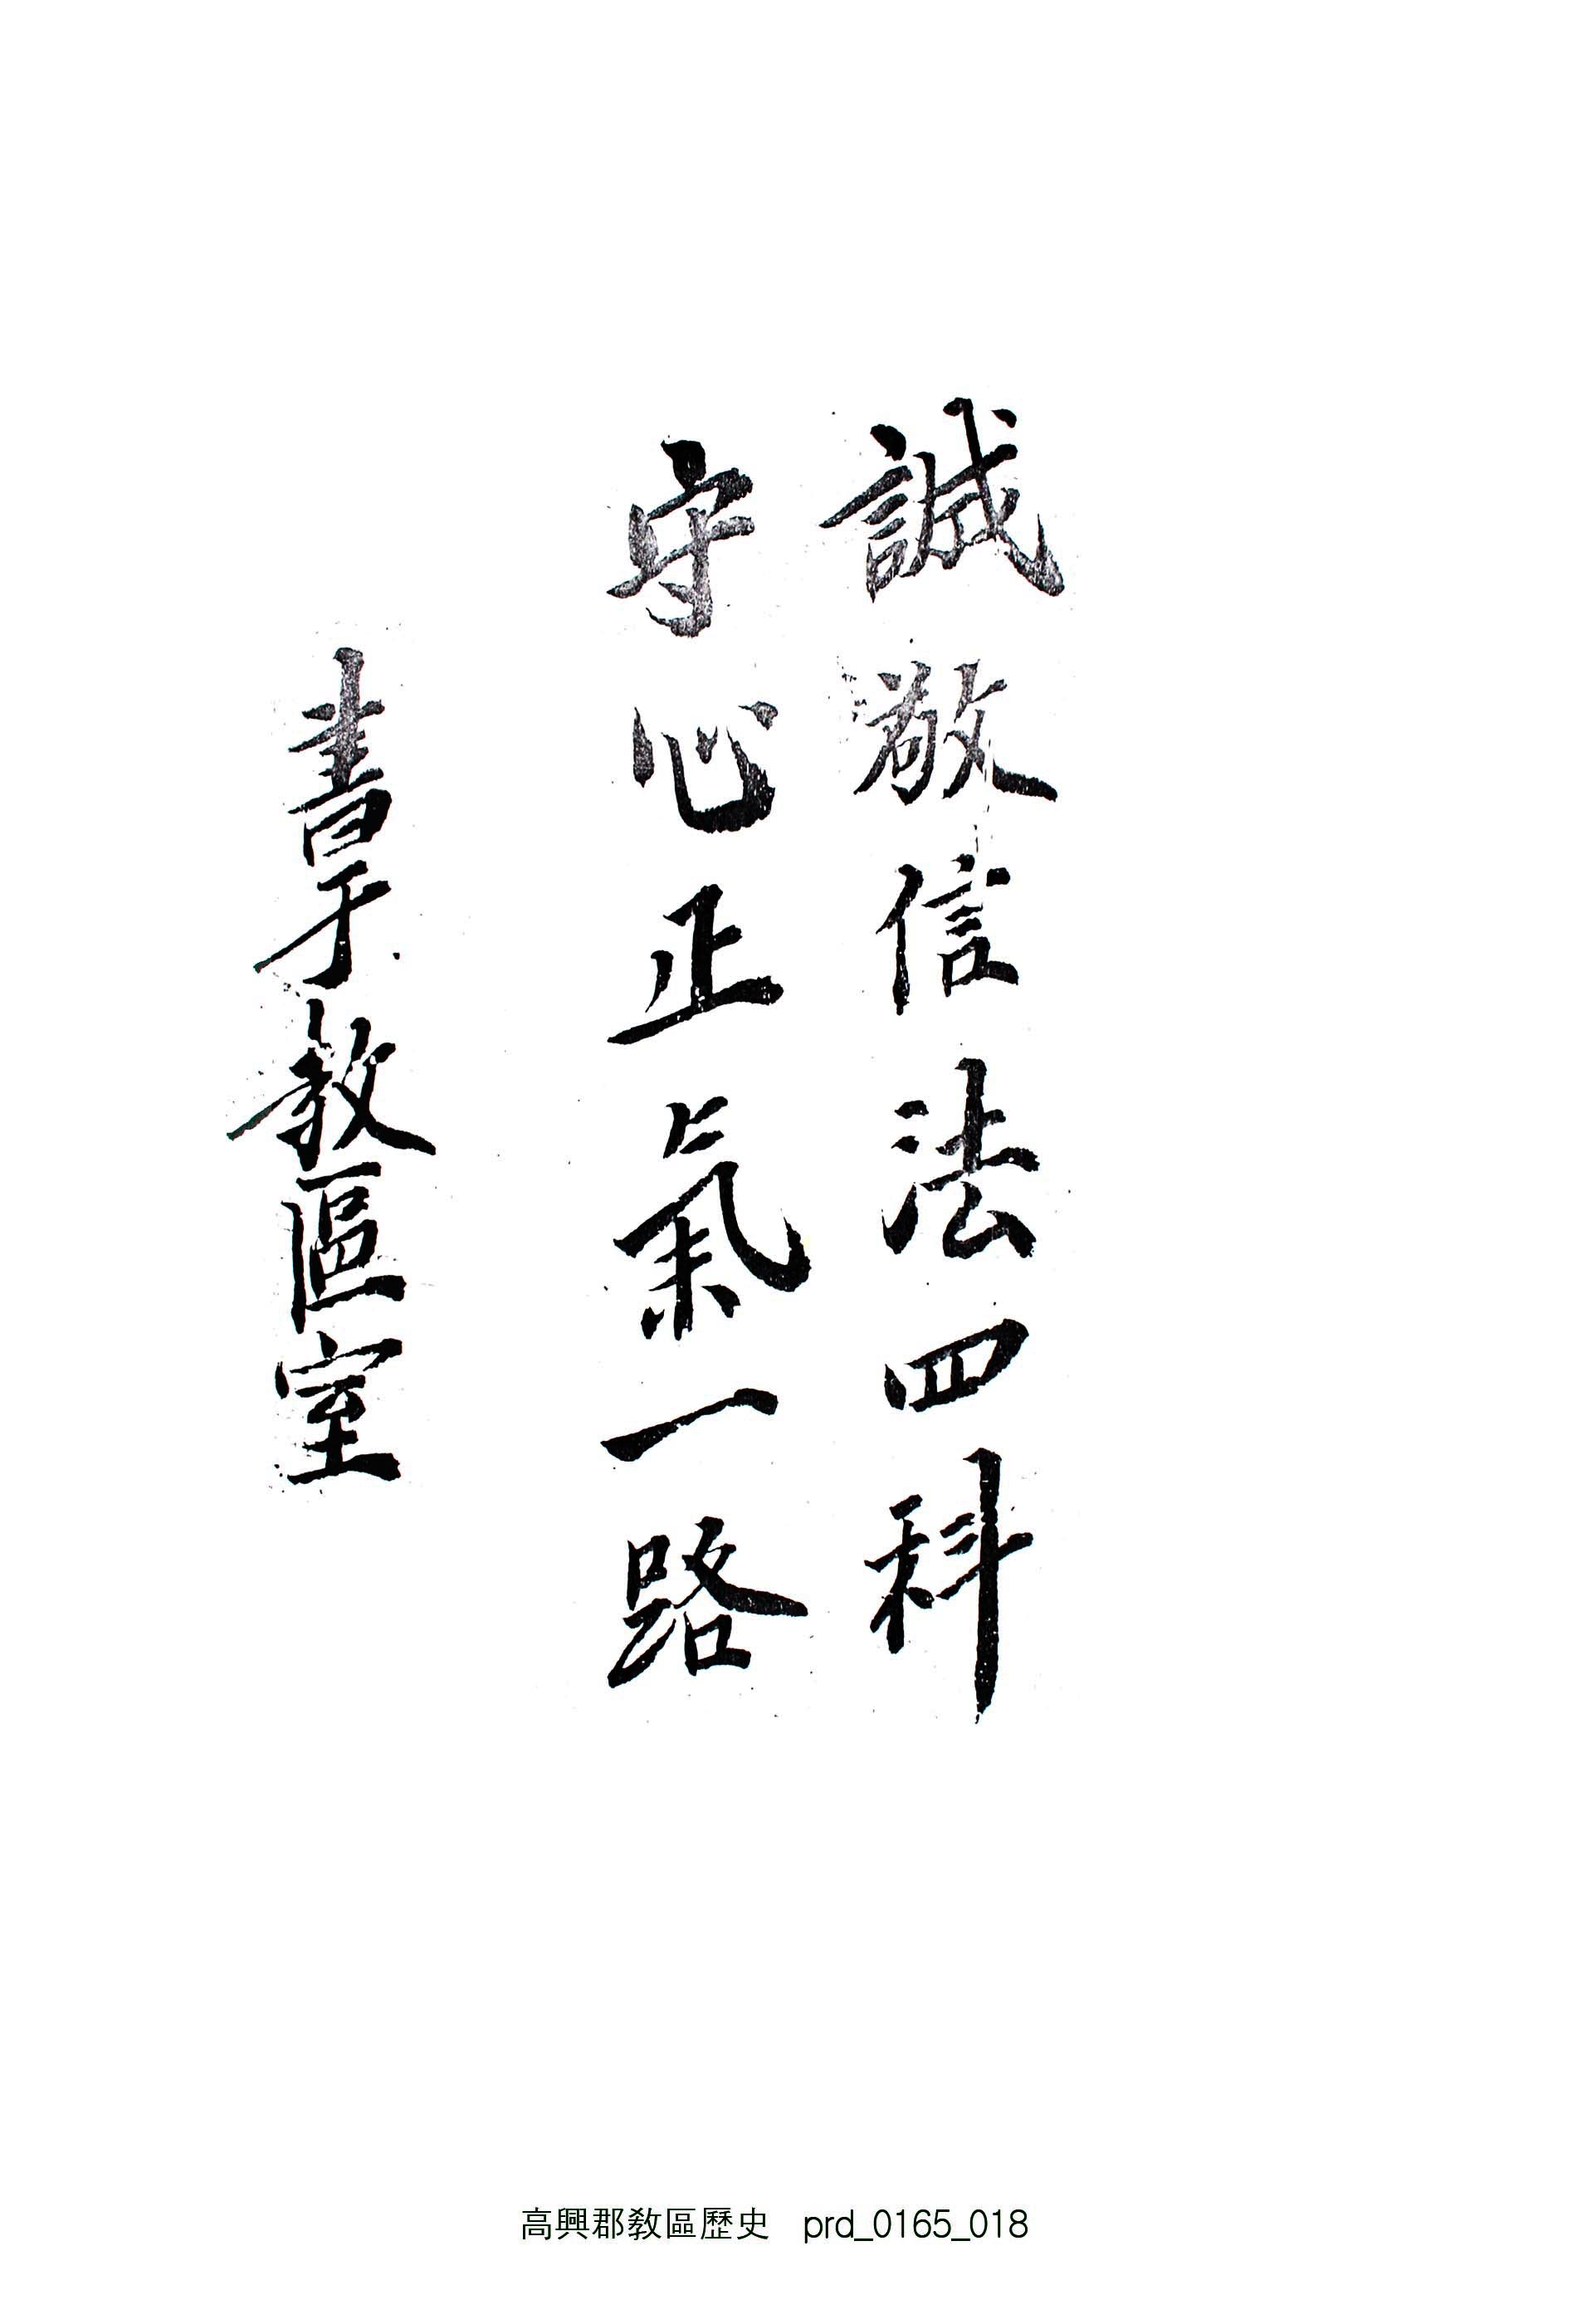 誠敬信法四科
守心正氣一路
書于敎區室
高興郡敎區歷史 prd_0165_018